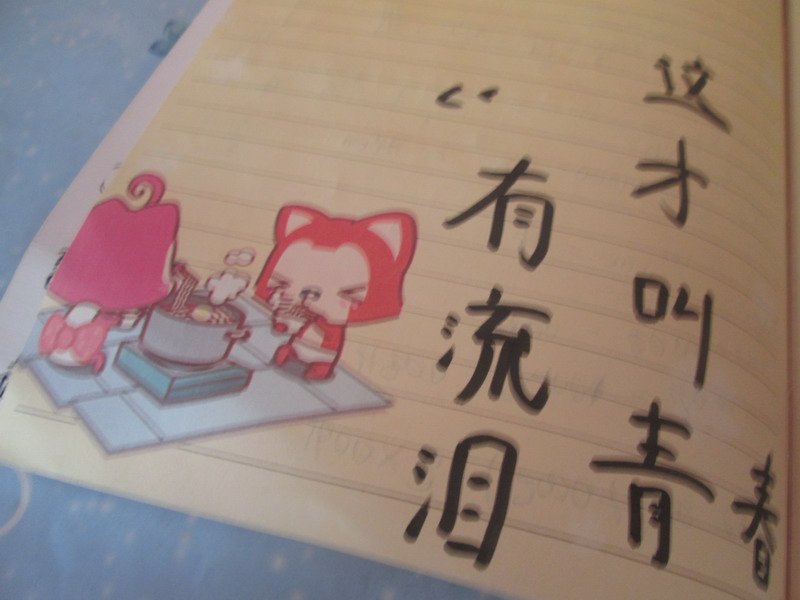 “有流泪
这才叫青春